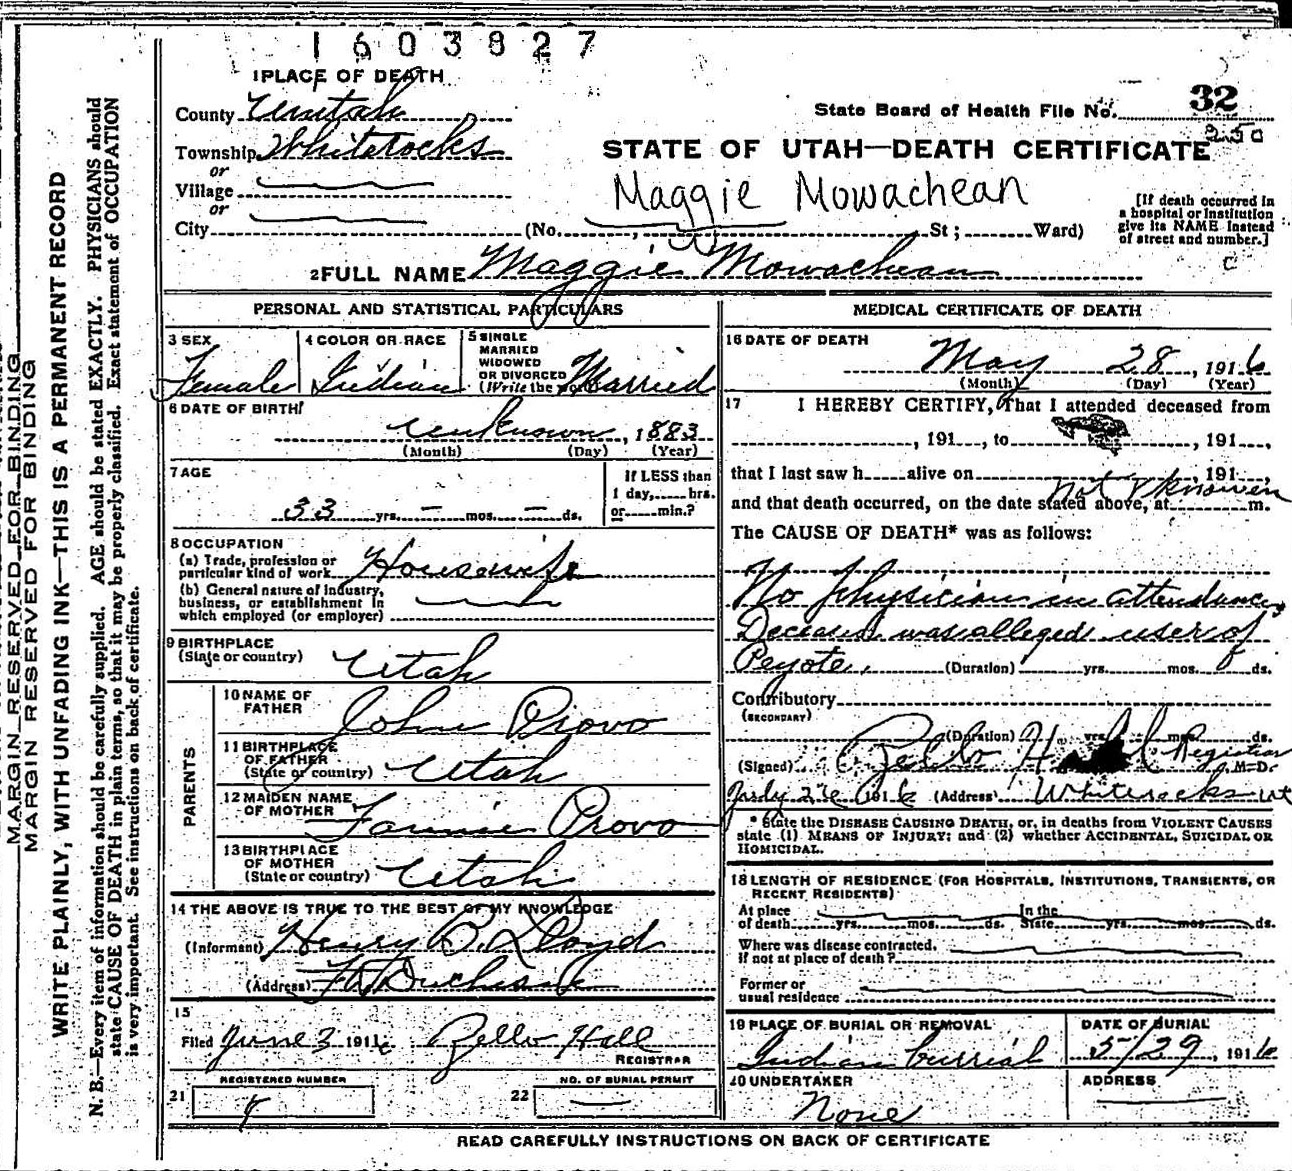 1603827
1 PLACE OF DEATH
County Uintah
State Board of Health File No. 32
250
Township Whiterocks
STATE OF UTAH—DEATH CERTIFICATE
or
Village
Maggie Mowachean
or
City (No. , St ; Ward)
[If death occurred in
a hospital or institution
give its NAME instead
of street and number.]
2 FULL NAME Maggie Mowachean
PERSONAL AND STATISTICAL PARTICULARS
3 SEX
Female
4 COLOR OR RACE
Indian
5 SINGLE
MARRIED
WIDOWED
OR DIVORCED
(Write the word) Married
6 DATE OF BIRTH
unknown, 1883
(Month) (Day) (Year)
7 AGE
33 yrs. — mos. — ds.
If LESS than
1 day, hrs.
or min.?
8 OCCUPATION
(a) Trade, profession or
particular kind of work Housewife
(b) General nature of industry,
business, or establishment in
which employed (or employer)
9 BIRTHPLACE
(State or country) Utah
PARENTS
10 NAME OF
FATHER John Provo
11 BIRTHPLACE
OF FATHER
(State or country) Utah
12 MAIDEN NAME
OF MOTHER Fannie Provo
13 BIRTHPLACE
OF MOTHER
(State or country) Utah
14 THE ABOVE IS TRUE TO THE BEST OF MY KNOWLEDGE
(Informant) Henry B. Lloyd
(Address) Ft Duchesne
15
Filed June 3 1916 Zello Hall
REGISTRAR
REGISTERED NUMBER
21
NO. OF BURIAL PERMIT
22 —
MEDICAL CERTIFICATE OF DEATH
16 DATE OF DEATH
May 28, 1916
(Month) (Day) (Year)
17 I HEREBY CERTIFY, That I attended deceased from
, 191 , to , 191 ,
that I last saw h alive on , 191 ,
and that death occurred, on the date stated above, at not known m.
The CAUSE OF DEATH* was as follows:
No physician in attendance,
Deceased was alleged user of
Peyote. (Duration) yrs. mos. ds.
Contributory
(SECONDARY)
(Duration) yrs. mos. ds.
(Signed) Zello Hall Registrar M.D.
July 1916 (Address) Whiterocks Ut
* State the DISEASE CAUSING DEATH, or, in deaths from VIOLENT CAUSES
state (1) MEANS OF INJURY; and (2) whether ACCIDENTAL, SUICIDAL OR
HOMICIDAL.
18 LENGTH OF RESIDENCE (FOR HOSPITALS, INSTITUTIONS, TRANSIENTS, OR
RECENT RESIDENTS)
At place
of death yrs. mos. ds. In the
State yrs. mos. ds.
Where was disease contracted,
if not at place of death?
Former or
usual residence
19 PLACE OF BURIAL OR REMOVAL
Indian burrial
DATE OF BURIAL
5/29, 1916
20 UNDERTAKER
None
ADDRESS
READ CAREFULLY INSTRUCTIONS ON BACK OF CERTIFICATE
MARGIN RESERVED FOR BINDING
MARGIN RESERVED FOR BINDING
WRITE PLAINLY, WITH UNFADING INK—THIS IS A PERMANENT RECORD
N. B.—Every item of information should be carefully supplied. AGE should be stated EXACTLY. PHYSICIANS should
state CAUSE OF DEATH in plain terms, so that it may be properly classified. Exact statement of OCCUPATION
is very important. See instructions on back of certificate.